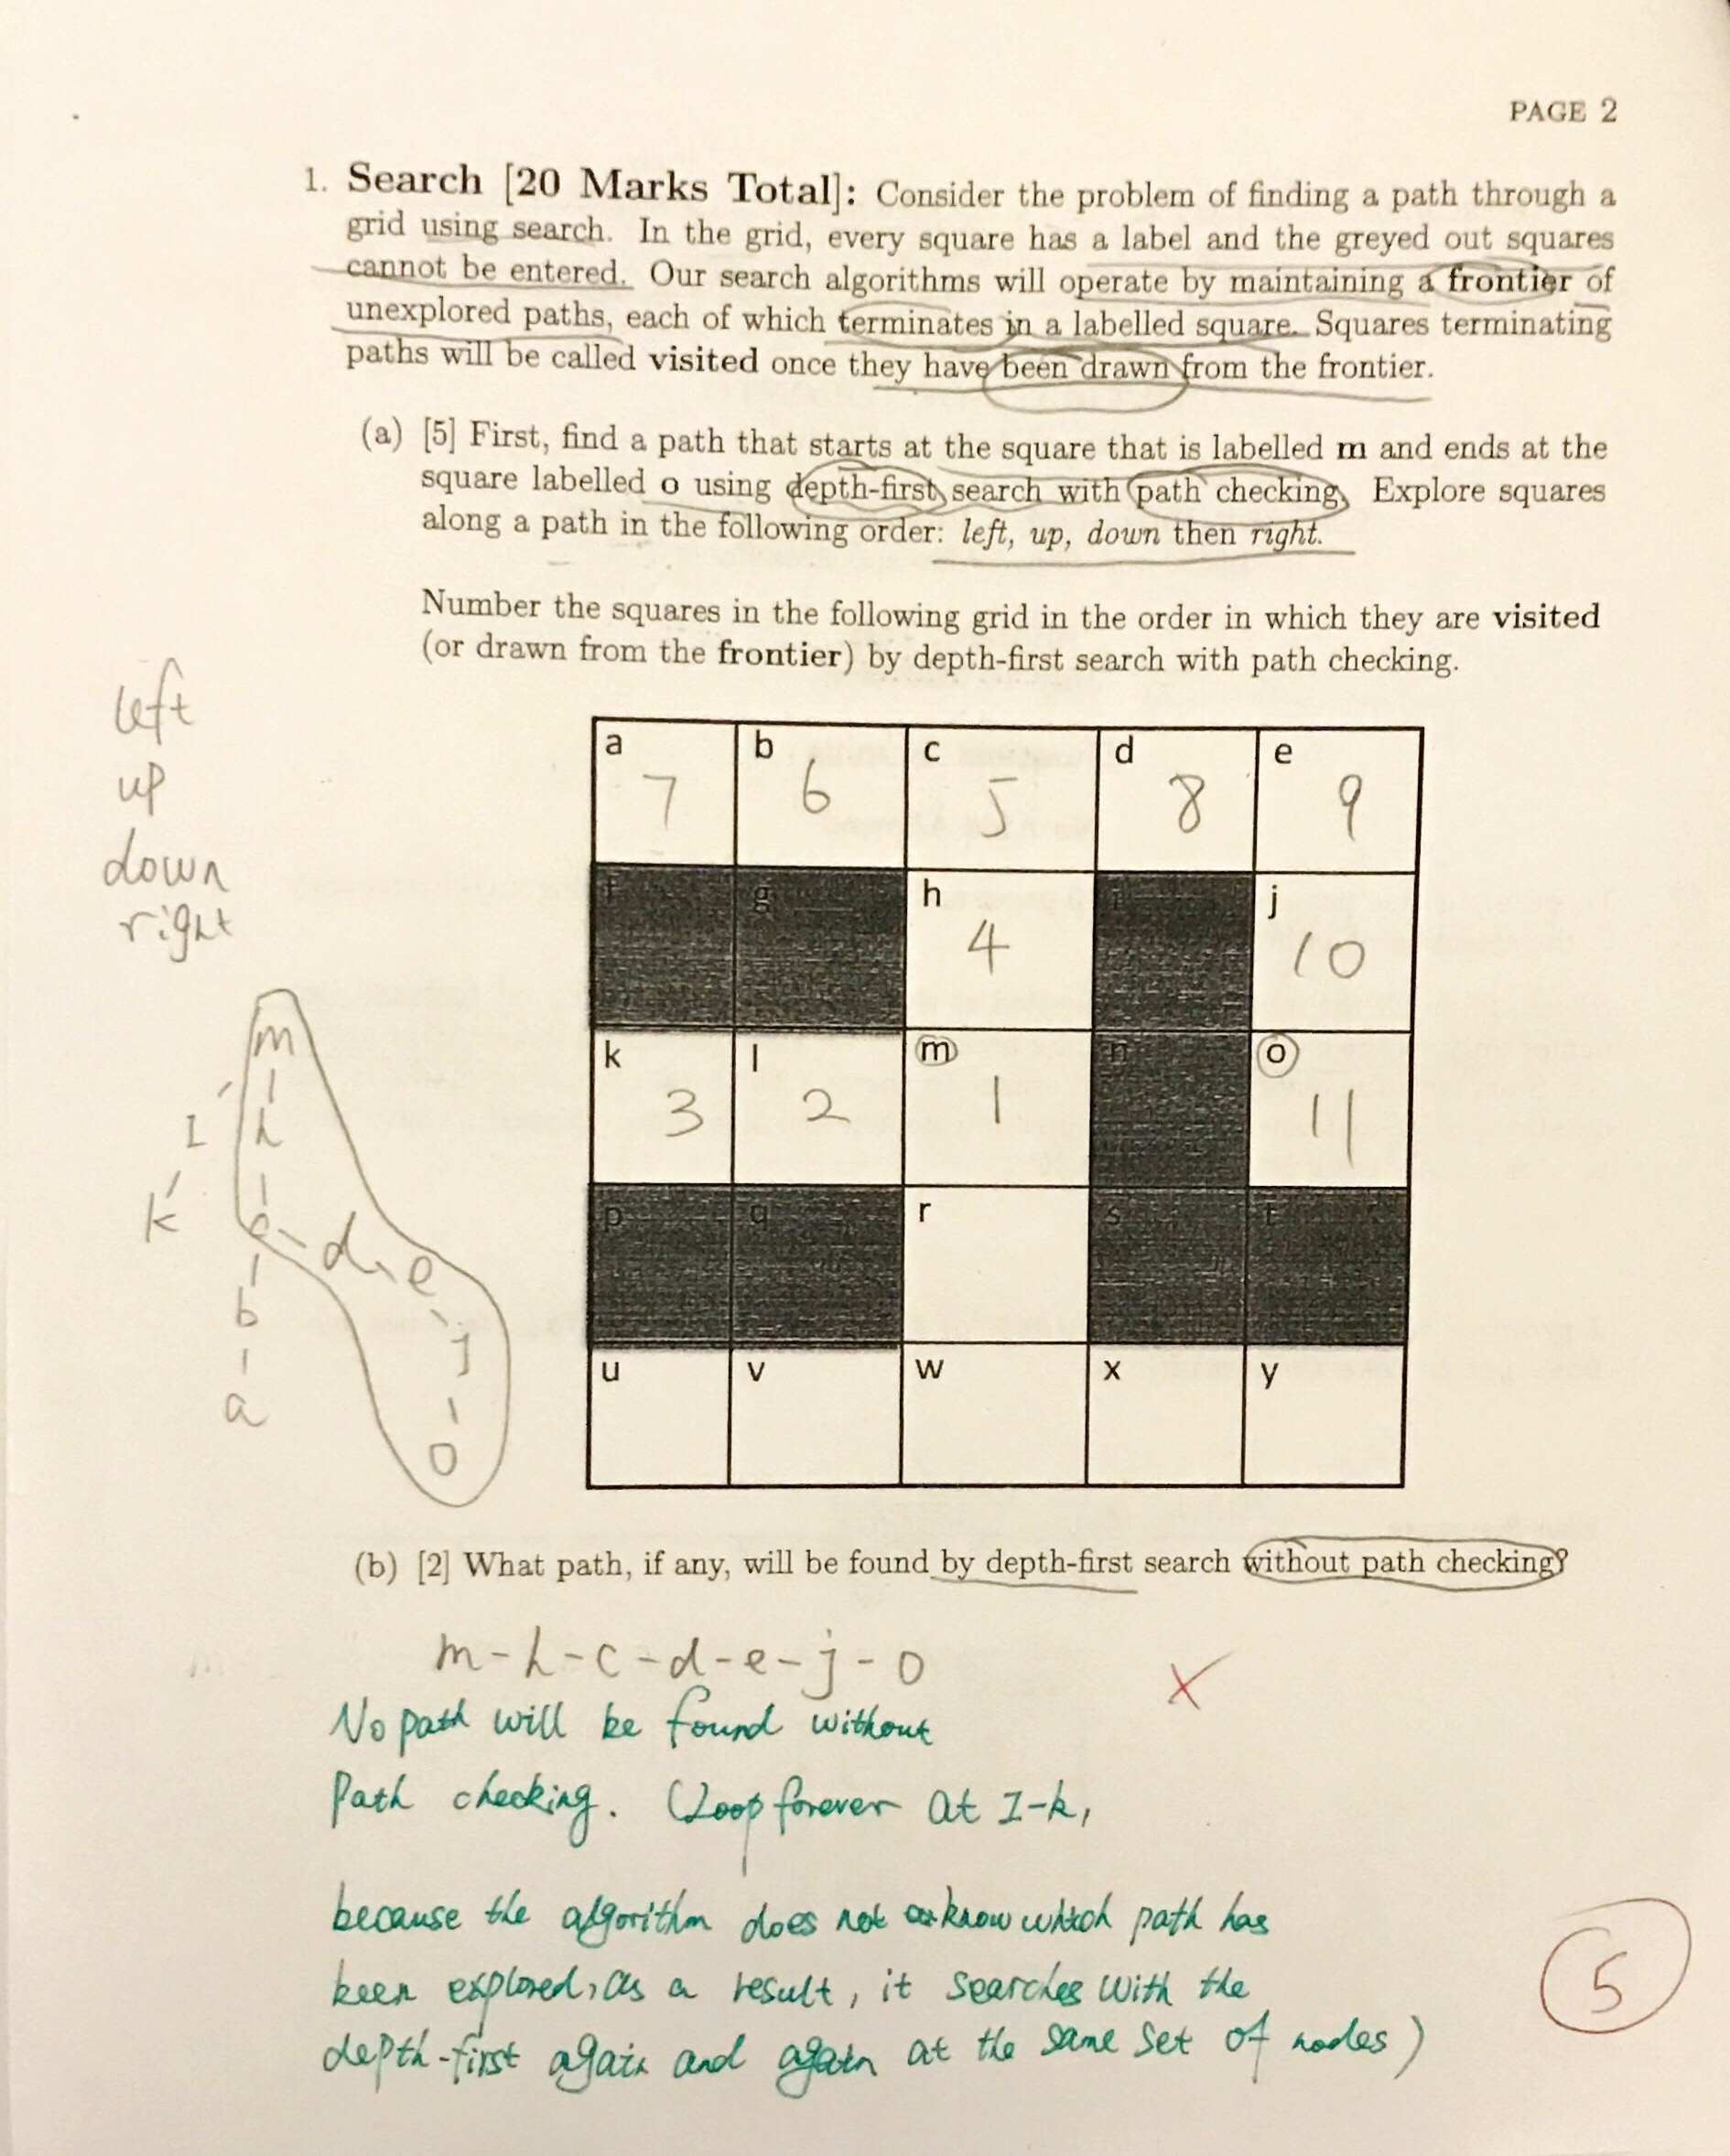 PAGE 2
1. Search [20 Marks Total]: Consider the problem of finding a path through a
grid using search. In the grid, every square has a label and the greyed out squares
cannot be entered. Our search algorithms will operate by maintaining a frontier of
unexplored paths, each of which terminates in a labelled square. Squares terminating
paths will be called visited once they have been drawn from the frontier.
(a) [5] First, find a path that starts at the square that is labelled m and ends at the
square labelled o using depth-first search with path checking. Explore squares
along a path in the following order: left, up, down then right.
Number the squares in the following grid in the order in which they are visited
(or drawn from the frontier) by depth-first search with path checking.
left
up
down
right
a b c d e
7 6 5 8 9
f g h i j
4 10
k l m n o
3 2 1 11
p q r s t
u v w x y
m
I h
k c d e
b j
a o
(b) [2] What path, if any, will be found by depth-first search without path checking?
m-h-c-d-e-j-o
No path will be found without
Path checking. (Loop forever at I-k,
because the algorithm does not know which path has
been explored, as a result, it searches with the
depth-first again and again at the same set of nodes)
5